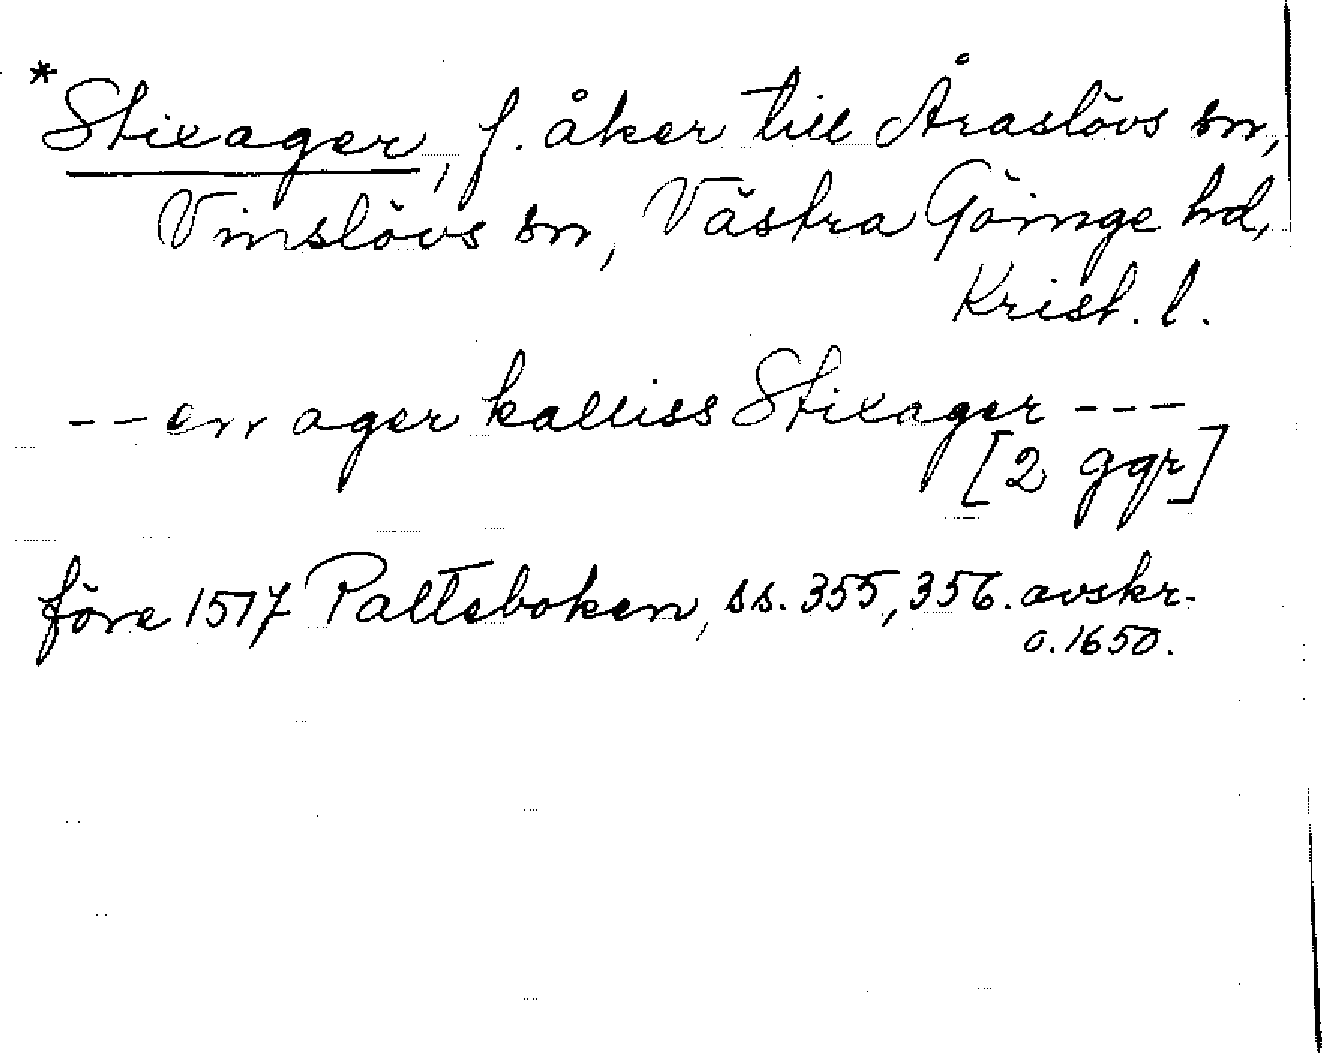 *Stixager, f. åker till Åraslövs sn,
Vinslövs sn, Västra Göinge hd,
Krist. l.
-- en ager kalliss Stixager ---
[2 ggr]
före 1517 Palteboken, ss. 355, 356. avskr.
o. 1650.